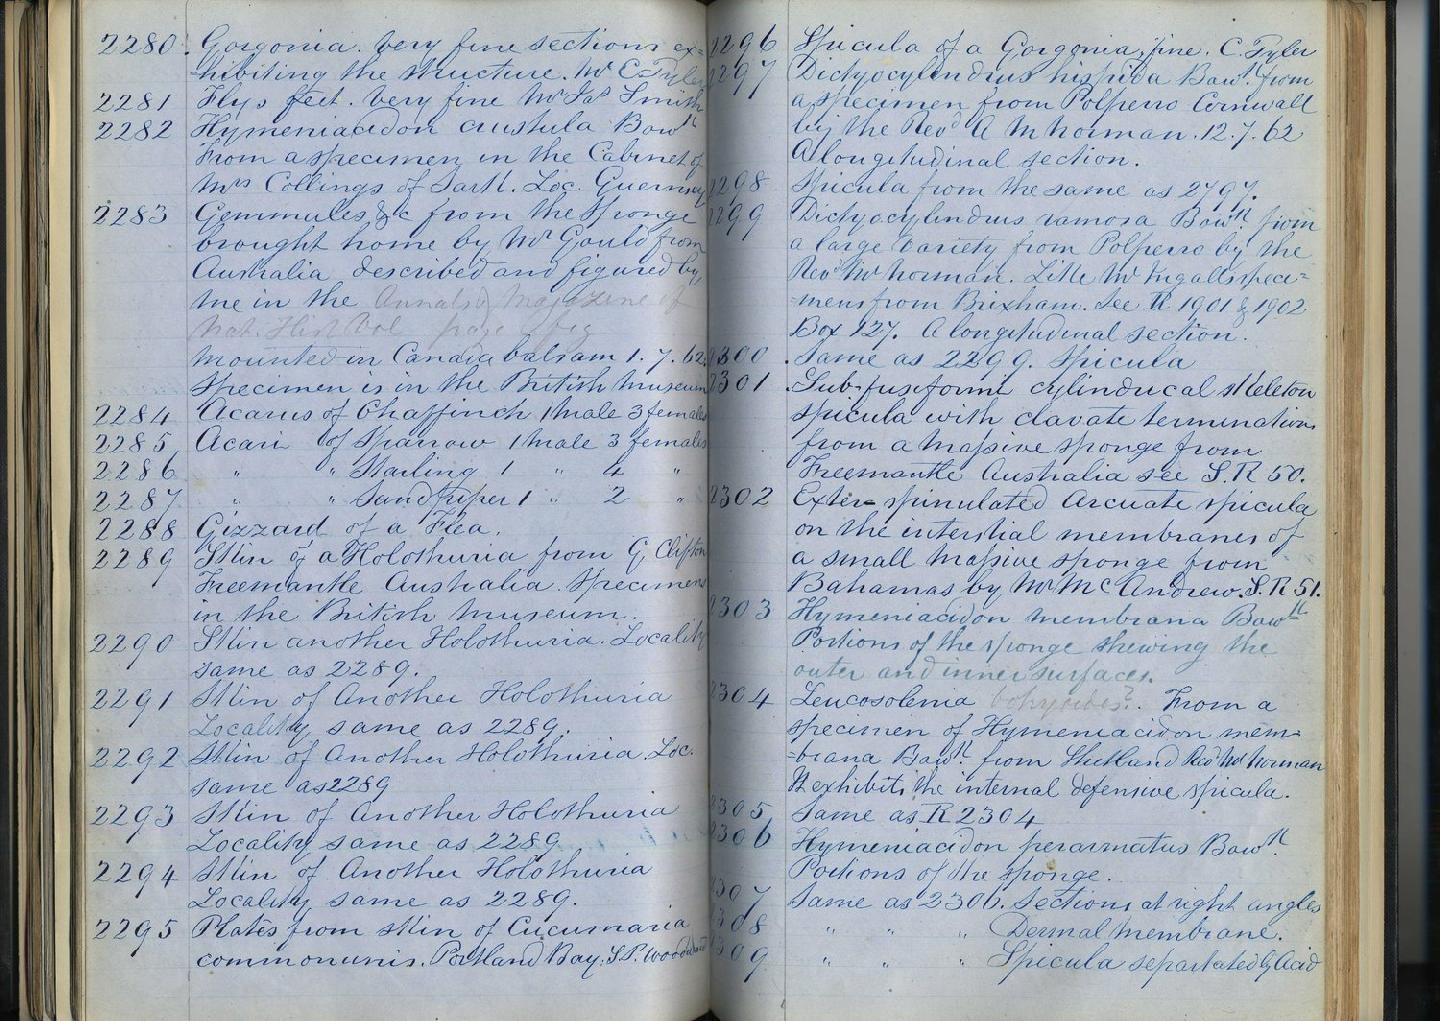 2280. Gorgonia. Very fine sections ex=
=hibiting the structure. Mr C Tyler
2281 Flys feet. Very fine Mr Jas Smith
2282 Hymeniacidon Bowk
From a specimen in the Cabinet of
Mrs Collings of Sark. Loc. Guernsey
2283 Gemmules &c from the Sponge
brought home by Mr Gould from
Australia described and figured by
me in the Annals & Magazine of
Nat. Hist Vol page fig
Mounted in Canada balsam 1.7.62.
Specimen is in the British Museum
2284 Acarus of Chaffinch 1 Male 3 females
2285 Acari of Sparrow 1 Male 3 females
2286 " " Starling 1 " 4 "
2287 " " Sandpiper 1 " 2 "
2288 Gizzard of a Flea.
2289 Skin of a Holothuria from G Clifton
Freemantle Australia. Specimens
in the British Museum.
2290 Skin another Holothuria. Locality
same as 2289.
2291 Skin of Another Holothuria
Locality same as 2289.
2292 Skin of Another Holothuria Loc.
same as 2289
2293 Skin of Another Holothuria
Locality same as 2289
2294 Skin of Another Holothuria
Locality same as 2289.
2295 Plates from skin of Cucumaria
communis. Portland Bay. S.P. Woodward
2296 Spicula of a Gorgonia, fine. C. Tyler
2297 Dictyocylindrus hispida Bowk. from
a specimen from Polperro Cornwall
by the Revd A M Norman. 12.7.62
A longitudinal section.
2298 Spicula from the same as 2797.
2299 Dictyocylindrus ramosa Bowk from
a large variety from Polperro by the
Revd Mr Norman. Like Mr Ingalls speci=
=mens from Brixham. See R 1901 & 1902
Box 127. A longitudinal section.
2300 Same as 2299. Spicula
2301 Sub-fusiformi cylindrical skeleton
spicula with clavate terminations
from a massive sponge from
Freemantle Australia see S.R 50.
2302 Exter=spinulated Arcuate spicula
on the interstial membranes of
a small massive sponge from
Bahamas by Mr McAndrew. S.R 51.
2303 Hymeniacidon membrana Bowk
Portions of the sponge shewing the
outer and inner surfaces.
2304 Leucosolenia botryoides?. From a
specimen of Hymeniacidon mem=
=brana Bowk. from Shetland Revd Mr Norman
It exhibits the internal defensive spicula.
2305 Same as R 2304
2306 Hymeniacidon perarmatus Bowk.
Portions of the sponge.
2307 Same as 2306. Sections at right angles
2308 " " " Dermal membrane.
2309 " " " Spicula separated by Acid